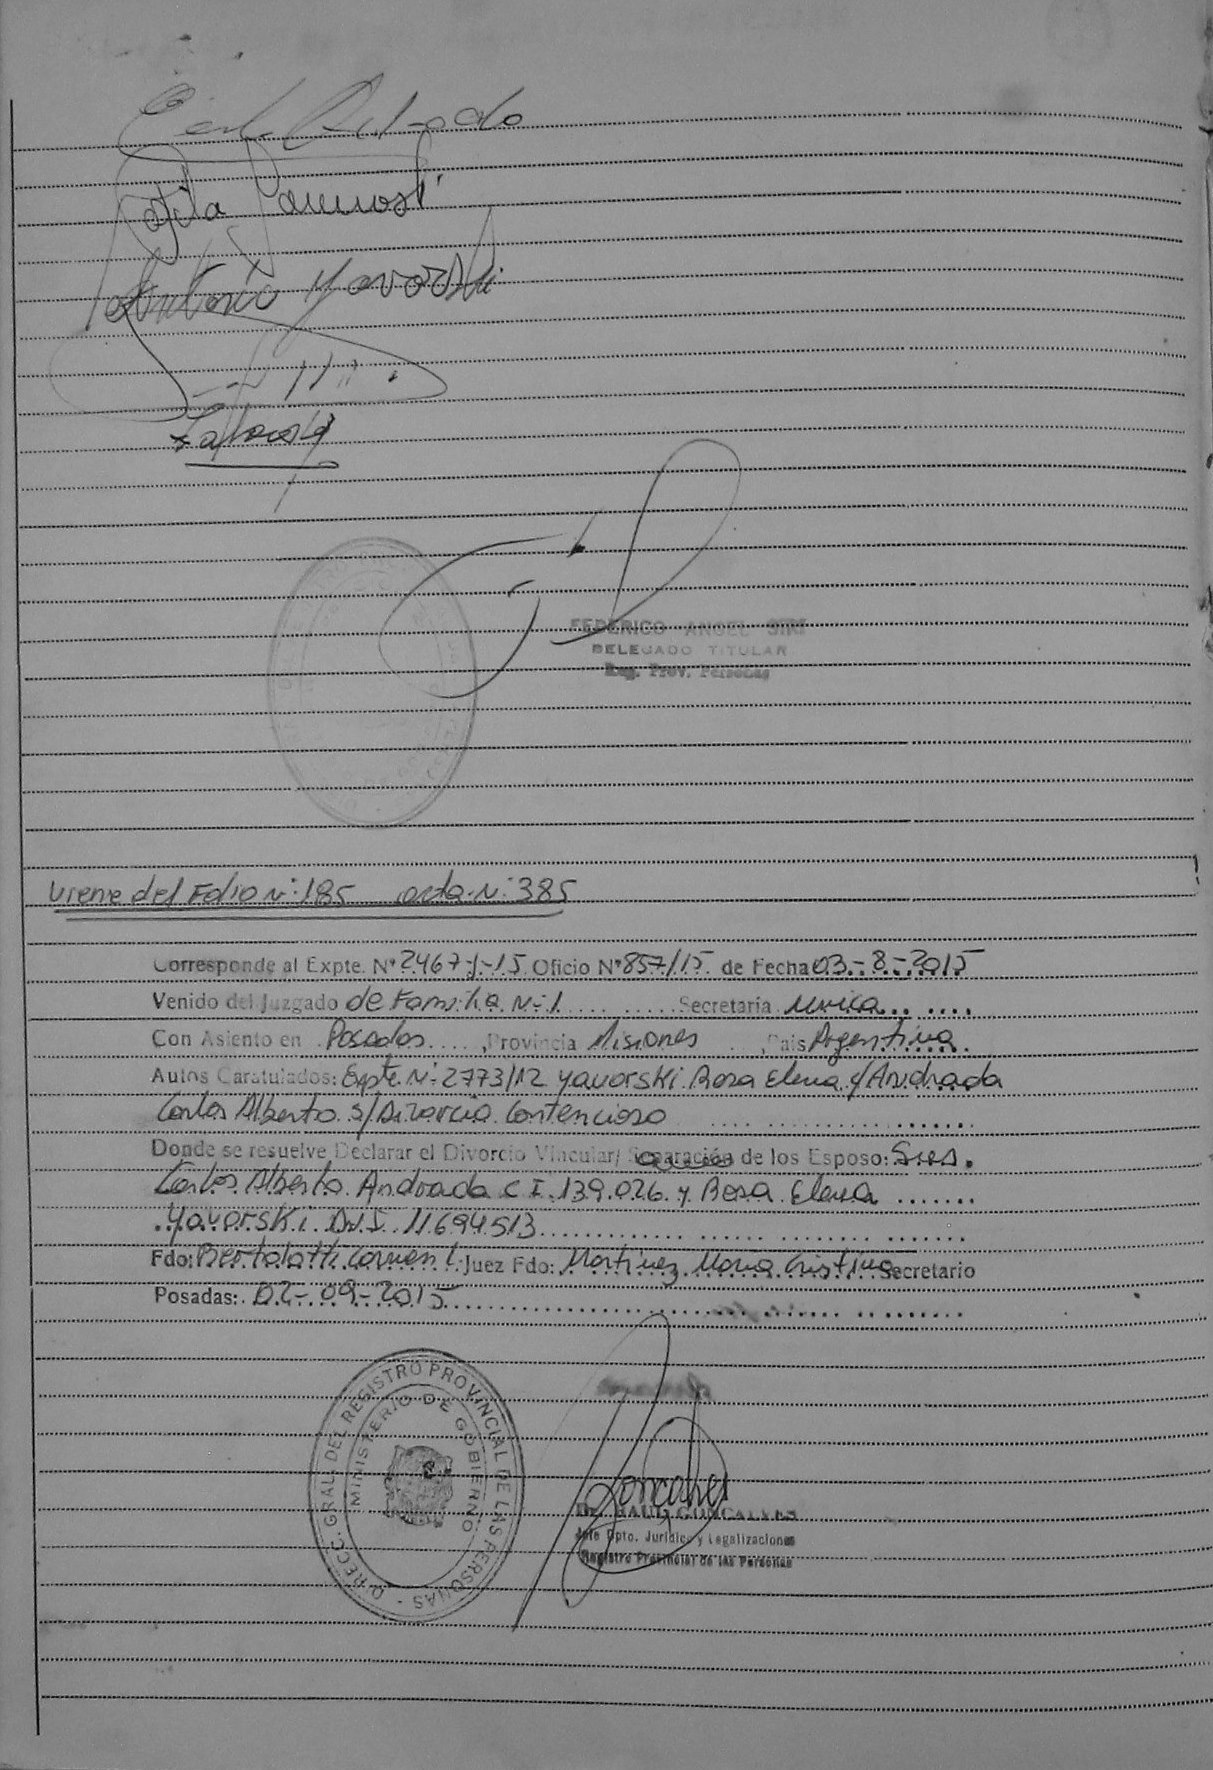 Antonio Yavorski
FEDERICO ANGEL SIRI
DELEGADO TITULAR
Reg. Prov. Personas
Viene del Folio Nº 185 acta Nº 385
Corresponde al Expte. Nº 2467-y-15 Oficio Nº 857/15 de Fecha 03-8-2015
Venido del Juzgado de Familia Nº 1 Secretaria unica
Con Asiento en Posadas, Provincia Misiones, Pais Argentina.
Autos Caratulados: Expte. Nº 2773/12 Yavorski Rosa Elena c/ Andrada
Carlos Alberto s/ Divorcio Contencioso
Donde se resuelve Declarar el Divorcio Vincular/ Separación de los Esposo: Sres.
Carlos Alberto Andrada C I. 139.026. y Rosa Elena
Yavorski. D.N.I. 11694513
Fdo: Bertolotti Carmen Juez Fdo: Martinez Maria Cristina Secretario
Posadas: 02-09-2015
DIRECC. GRAL. DEL REGISTRO PROVINCIAL DE LAS PERSONAS -
MINISTERIO DE GOBIERNO
Dr. RAUL GONCALVES
Jefe Dpto. Jurídico y Legalizaciones
Registro Provincial de las Personas